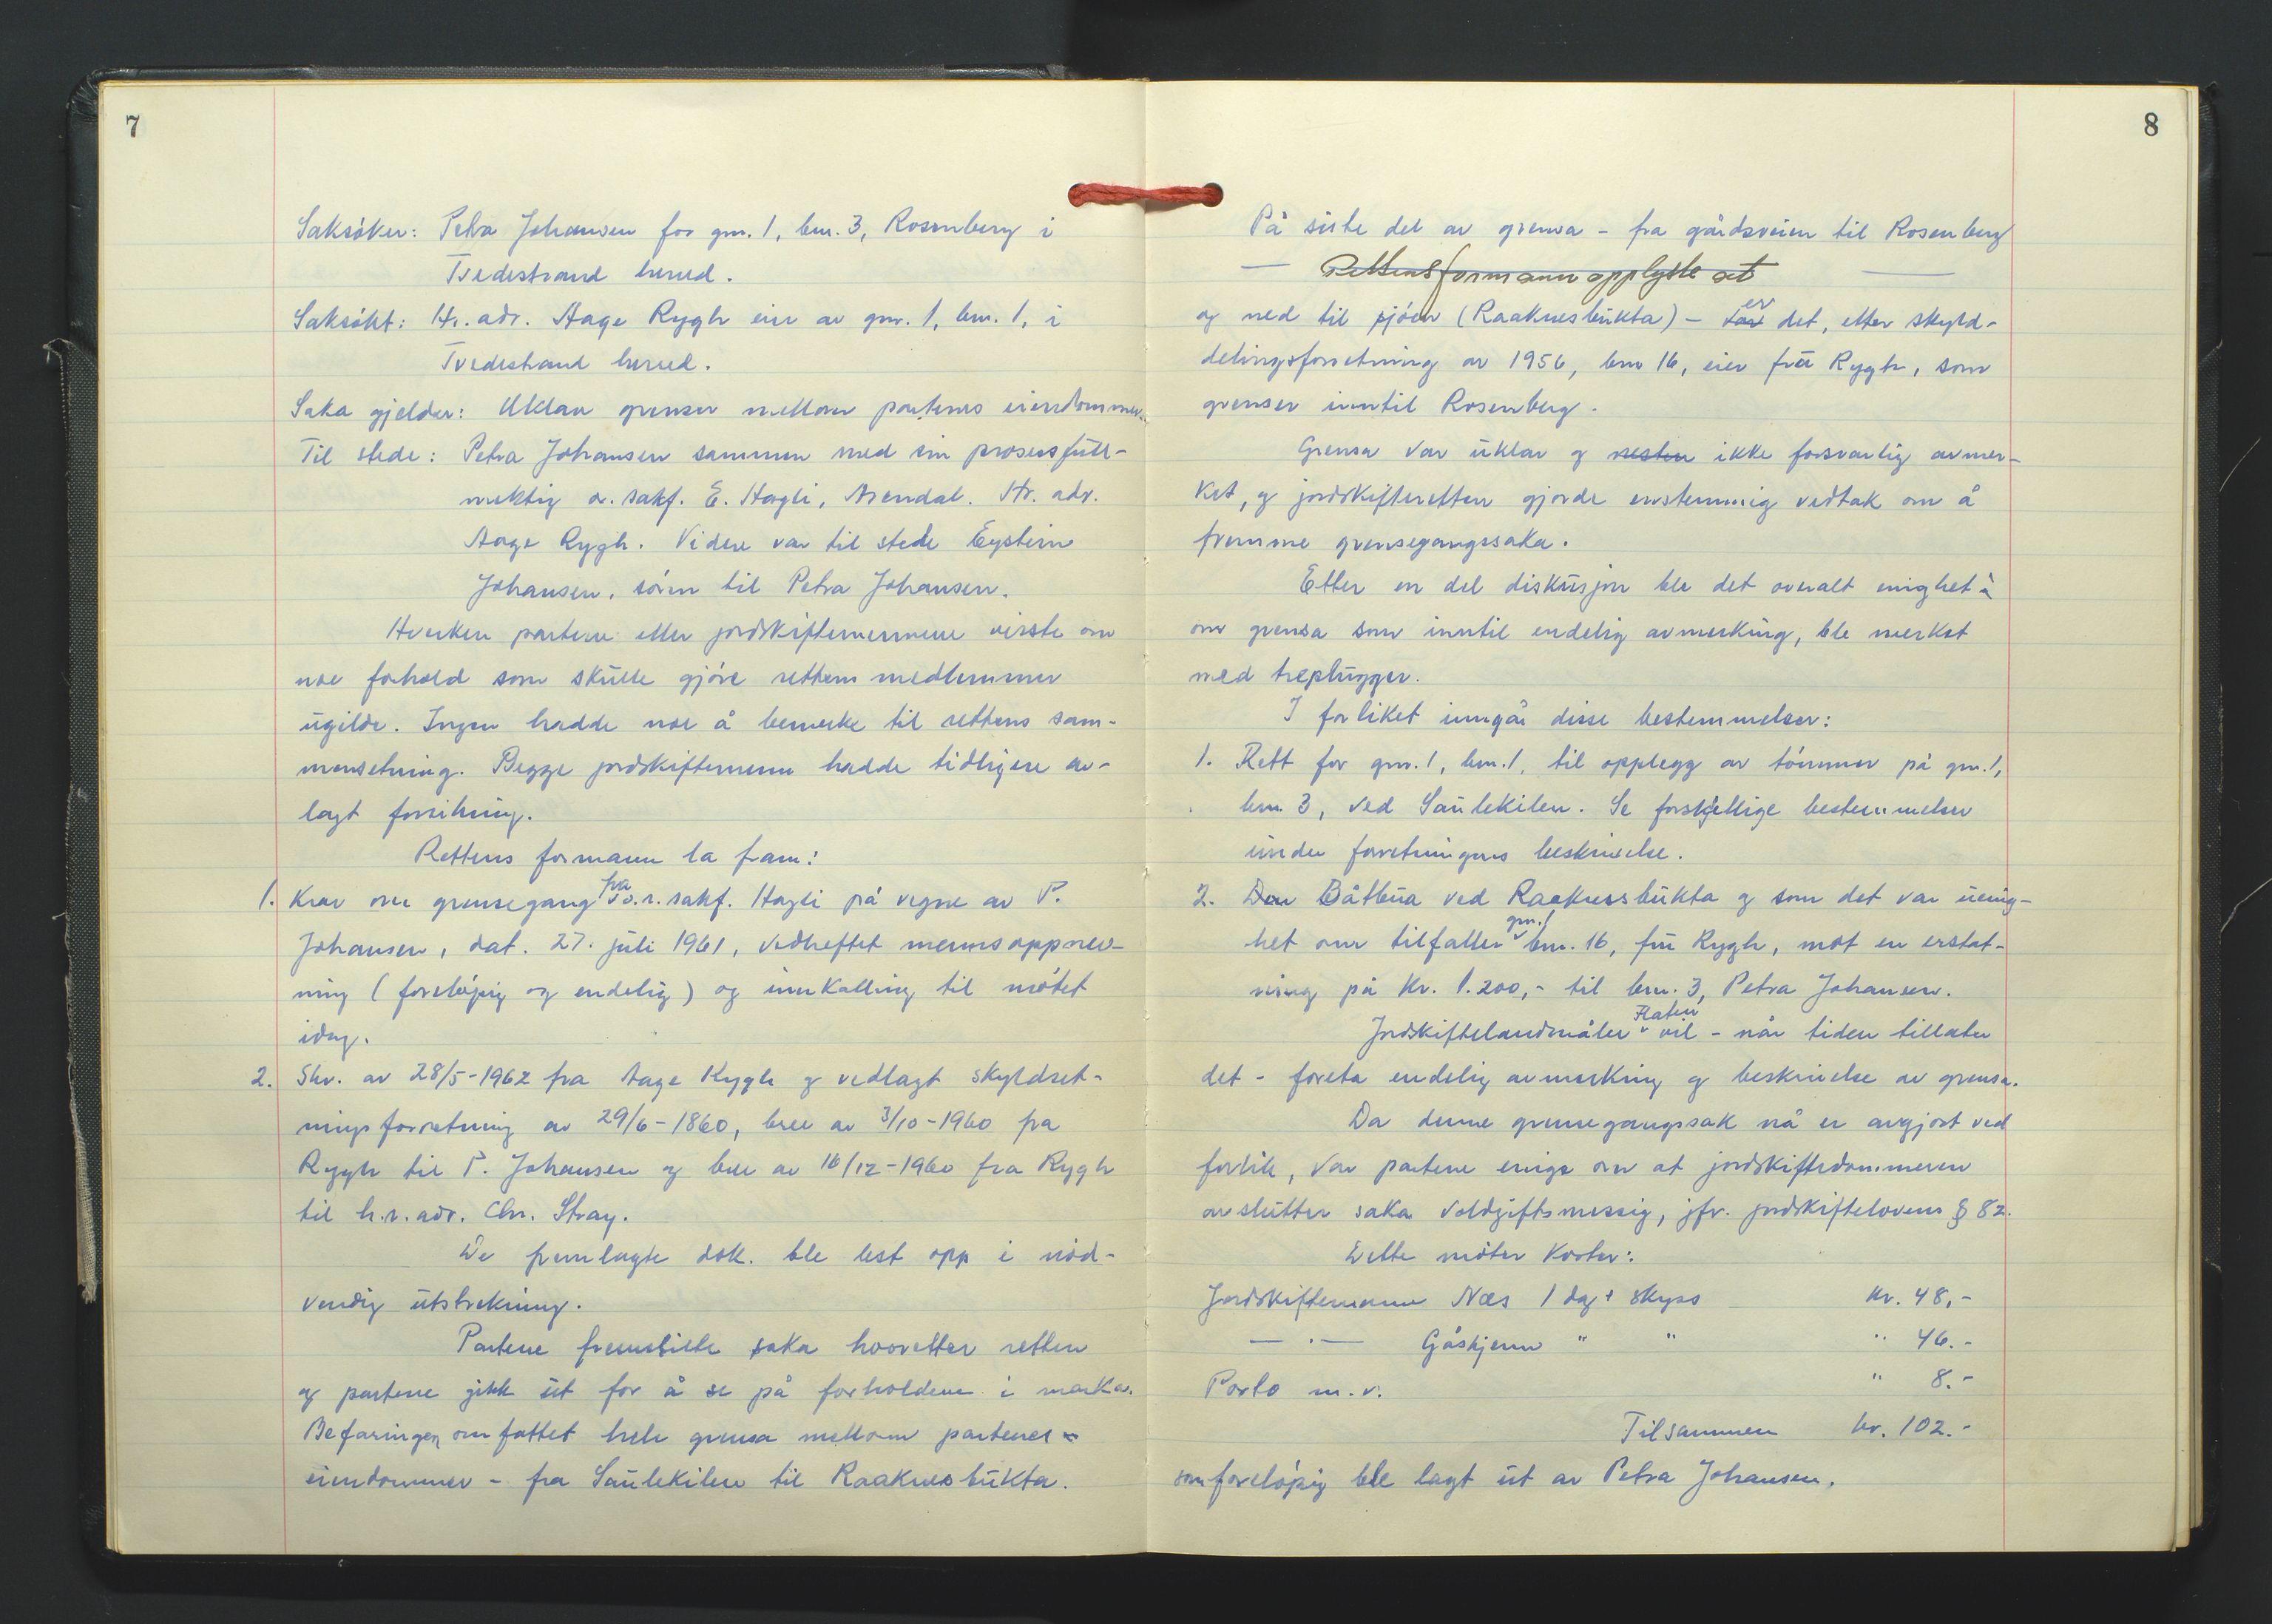 7
Saksøker: Petra Johansen for gnr. 1, bnr. 3, Rosenberg i
Tvedestrand herred.
Saksøkt: H.r.adv. Aage Rygh eier av gnr. 1, bnr. 1, i
Tvedestrand herred.
Saka gjelder: Uklar grenser mellom partenes eiendommer.
Til stede: Petra Johansen sammen med sin prosessfull-
mektig o.r.sakf. E. Hagli, Arendal. Hr. adv.
Aage Rygh. Videre var til stede Eystein
Johansen, sønn til Petra Johansen.
Hverken partene eller jordskiftemennene visste om
noe forhold som skulle gjøre rettens medlemmer
ugilde. Ingen hadde noe å bemerke til rettens sam-
mensetning. Begge jordskiftemenn hadde tidligere av-
lagt forsikring.
Rettens formann la fram:
1. Krav om grensegang fra o.r.sakf. Hagli på vegne av P.
Johansen, dat. 27. juli 1961, vedheftet mennsoppnev-
ning (foreløpig og endelig) og innkalling til møtet
idag.
2. Skr. av 28/5-1962 fra Aage Rygh og vedlagt skyldset-
ningsforretning av 29/6-1860, brev av 3/10-1960 fra
Rygh til P. Johansen og brev av 16/12-1960 fra Rygh
til h.r.adv. Chr. Stray.
De fremlagte dok. ble lest opp i nød-
vendig utstrekning.
Partene fremstilte saka hvoretter retten
og partene gikk ut for å se på forholdene i marka.
Befaringen omfattet hele grensa mellom partenes
eiendommer - fra Saulekilen til Raaknesbukta.
8
På siste del av grensa - fra gårdsveien til Rosenberg
— Rettens formann opplyste at —
og ned til sjøen (Raaknesbukta) - var er det, etter skyld-
delingsforretning av 1956, bnr 16, eier frü Rygh, som
grenser inntil Rosenberg.
Grensa var uklar og nesten ikke forsvarlig avmer-
ket, og jordskifteretten gjorde enstemmig vedtak om å
fremme grensegangssaka.
Etter en del diskusjon ble det overalt enighet
om grensa som inntil endelig avmerking, ble merket
med treplugger.
I forliket inngår disse bestemmelser:
1. Rett for gnr. 1, bnr. 1, til opplegg av tømmer på gnr. 1,
bnr. 3, ved Saulekilen. Se forskjellige bestemmelser
under forretningens beskrivelse.
2. Den Båtbua ved Raaknesbukta og som det var uenig-
het om tilfaller gnr. 1 bnr. 16, fru Rygh, mot en erstat-
ning på kr. 1.200,- til bnr. 3, Petra Johansen.
Jordskiftelandmåler Flaten vil - når tiden tillater
det - foreta endelig avmerking og beskrivelse av grensa.
Da denne grensegangssak nå er avgjort ved
forlik, var partene enige om at jordskiftedommeren
avslutter saka voldgiftsmessig, jfr. jordskiftelovens § 82.
Dette møter koster:
Jordskiftemann Næs 1 dag + skyss kr. 48,-
— " — Gåskjenn " " " 46.-
Porto m.v. " 8.-
Tilsammen kr. 102.-
som foreløpig ble lagt ut av Petra Johansen.